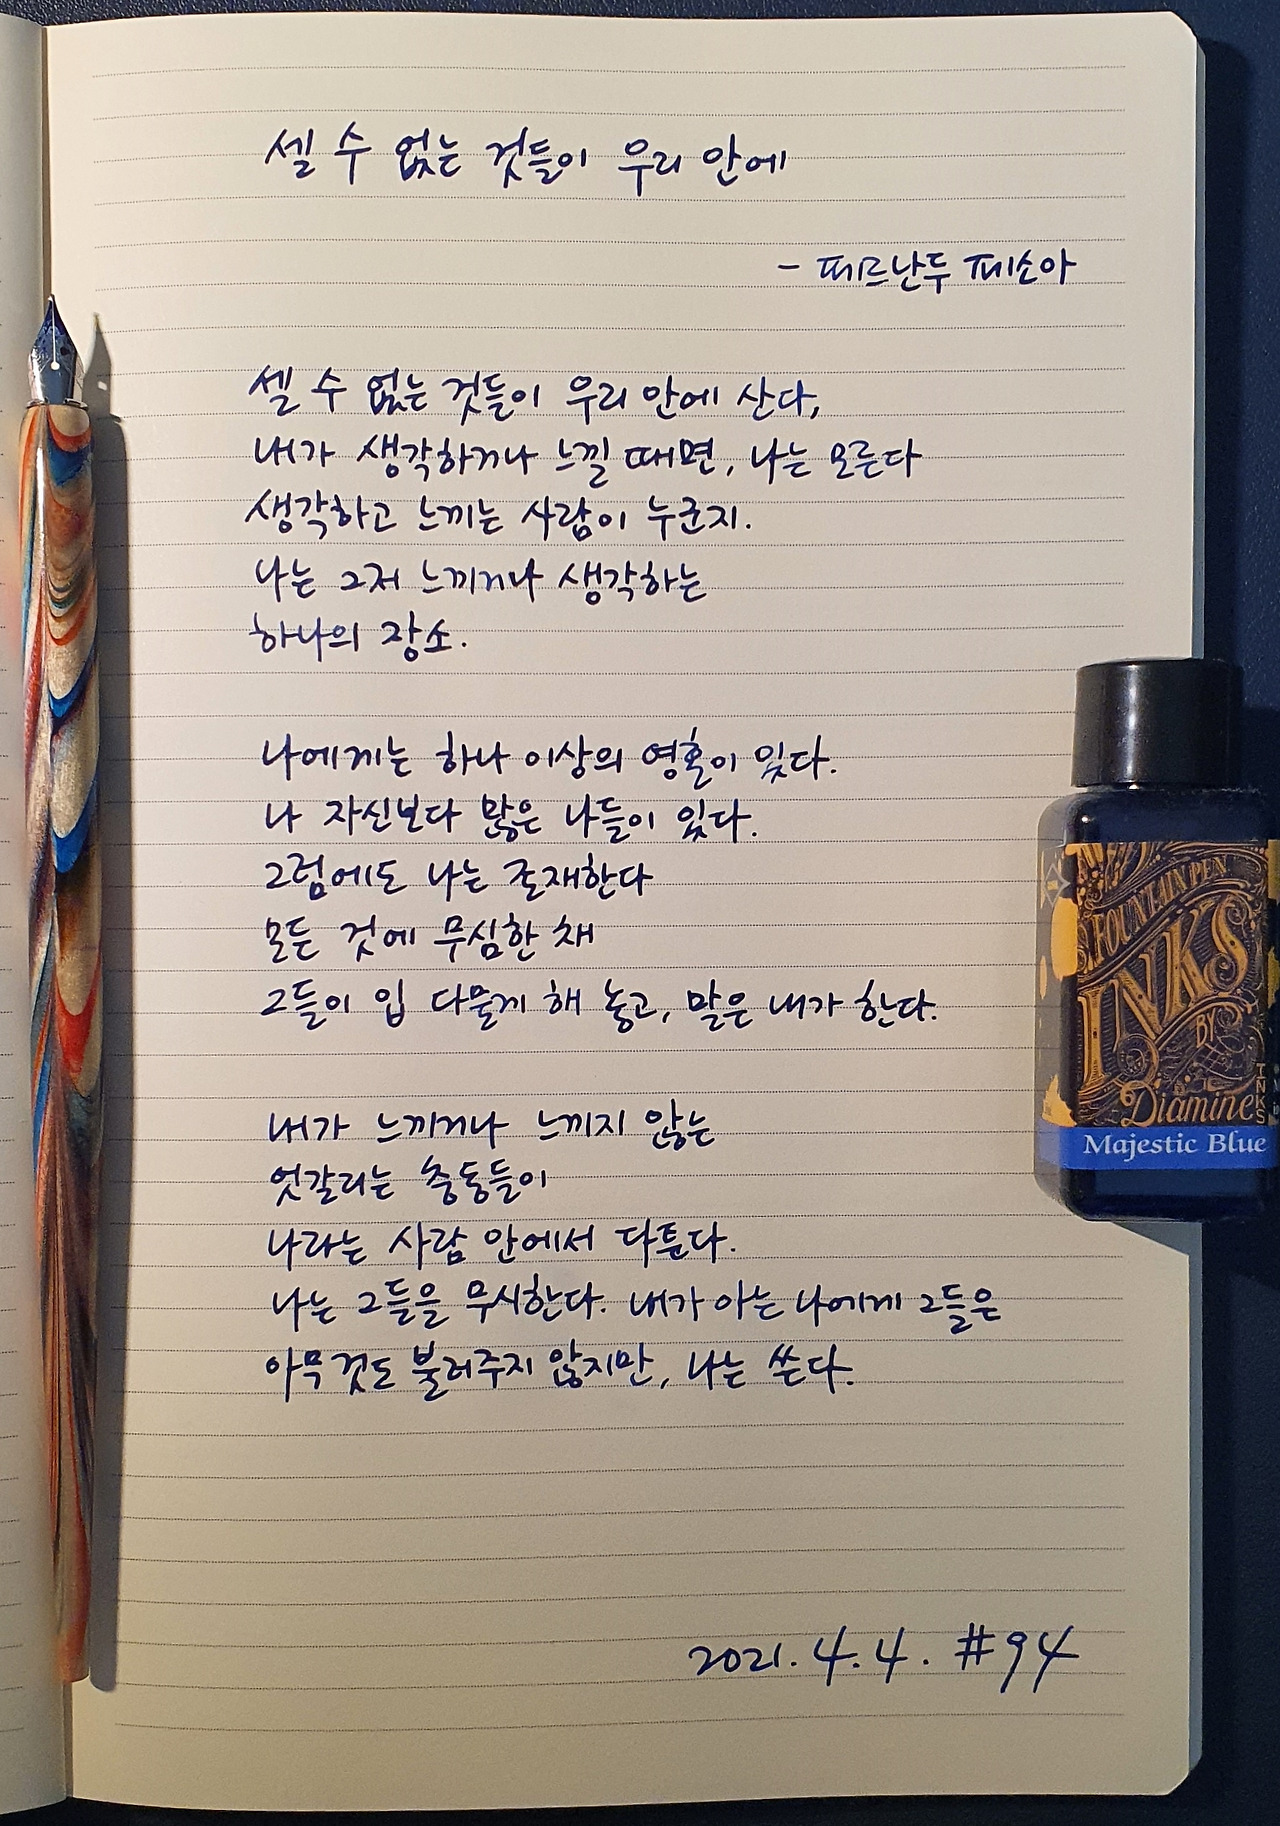 셀 수 없는 것들이 우리 안에
- 페르난두 페소아
셀 수 없는 것들이 우리 안에 산다,
내가 생각하거나 느낄 때면, 나는 모른다
생각하고 느끼는 사람이 누군지.
나는 그저 느끼거나 생각하는
하나의 장소.
나에게는 하나 이상의 영혼이 있다.
나 자신보다 많은 나들이 있다.
그럼에도 나는 존재한다
모든 것에 무심한 채
그들이 입 다물게 해 놓고, 말은 내가 한다.
내가 느끼거나 느끼지 않는
엇갈리는 충동들이
나라는 사람 안에서 다툰다.
나는 그들을 무시한다. 내가 아는 나에게 그들은
아무것도 불러주지 않지만, 나는 쓴다.
2021. 4. 4. #94
FOUNTAIN PEN
INKS
BY
Diamine
INKS
Majestic Blue